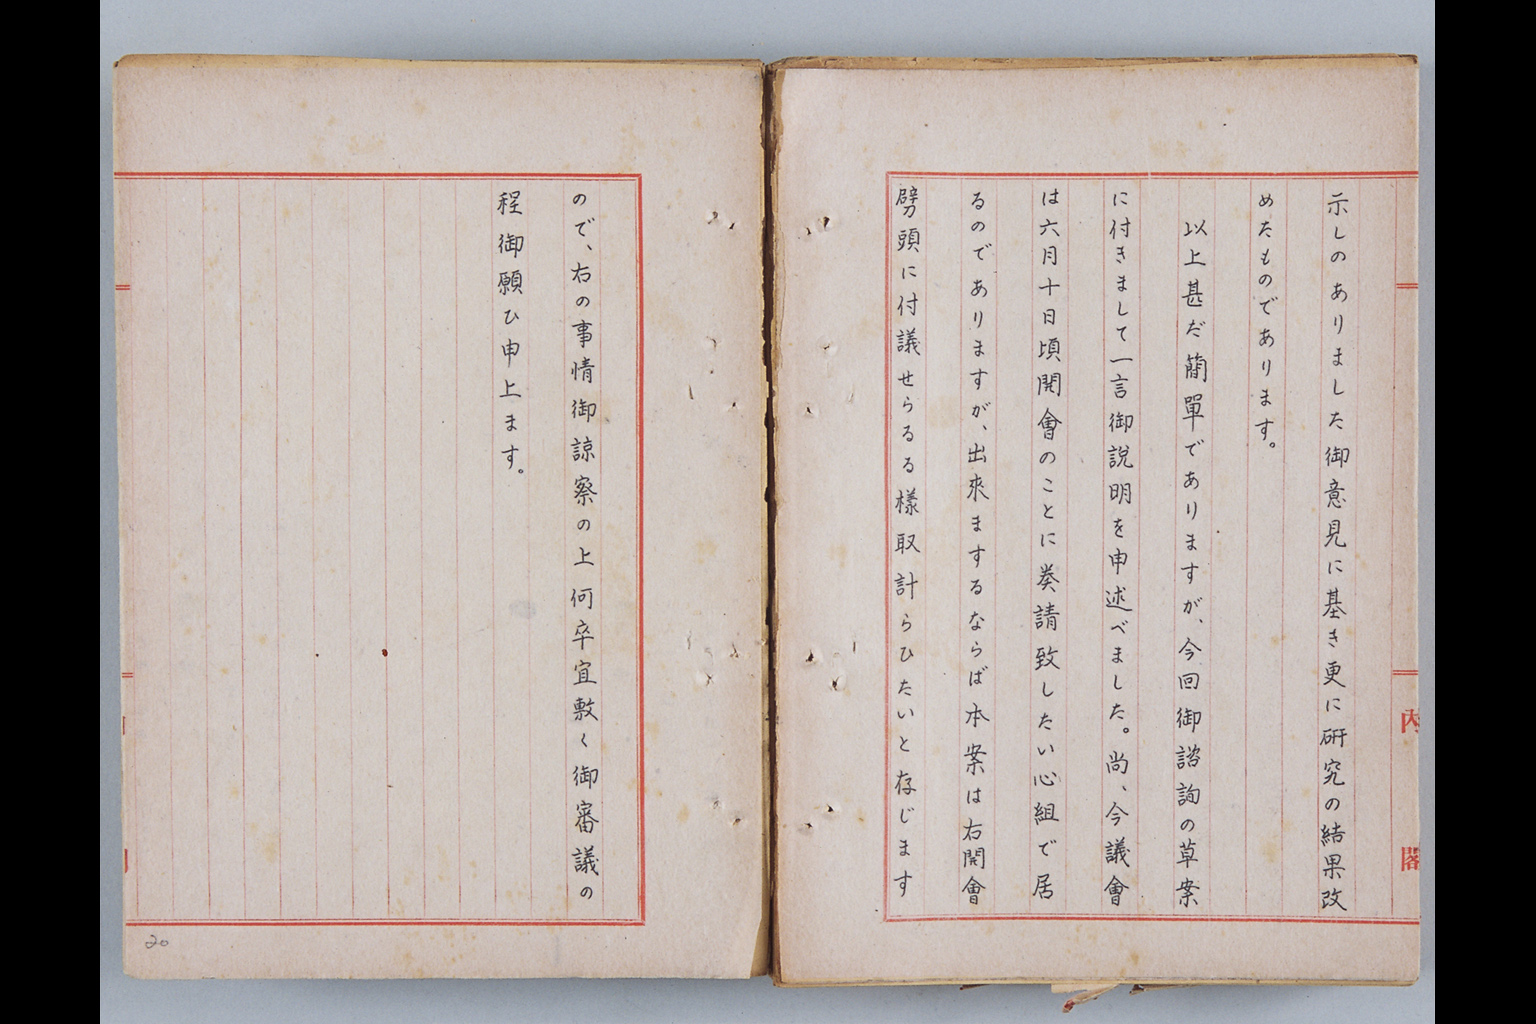 示しのありました御意見に基き更に研究の結果改
めたものであります。
以上甚だ簡單でありますが、今回御諮詢の草案
に付きまして一言御説明を申述べました。尚、今議會
は六月十日頃開會のことに奏請致したい心組で居
るのでありますが、出來まするならば本案は右開會
劈頭に付議せらるる樣取計らひたいと存じます
ので、右の事情御諒察の上何卒宜敷く御審議の
程御願ひ申上ます。
內閣
20